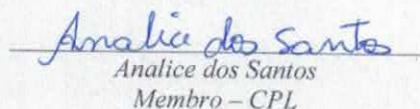 Analice dos Santos
Analice dos Santos
Membro – CPL